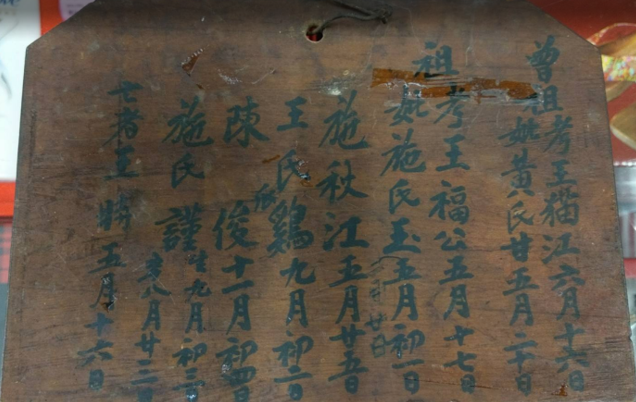 曾祖考王猫江六月十六日
妣黄氏甘五月二十日
祖考王福公五月十七日
妣施氏玉五月初一日
廿日
施秋江五月廿五日
王氏鷄九月初二日
陳俊十一月初四日
施氏謹生九月初三
卒八月廿二日
亡者王勝五月十六日